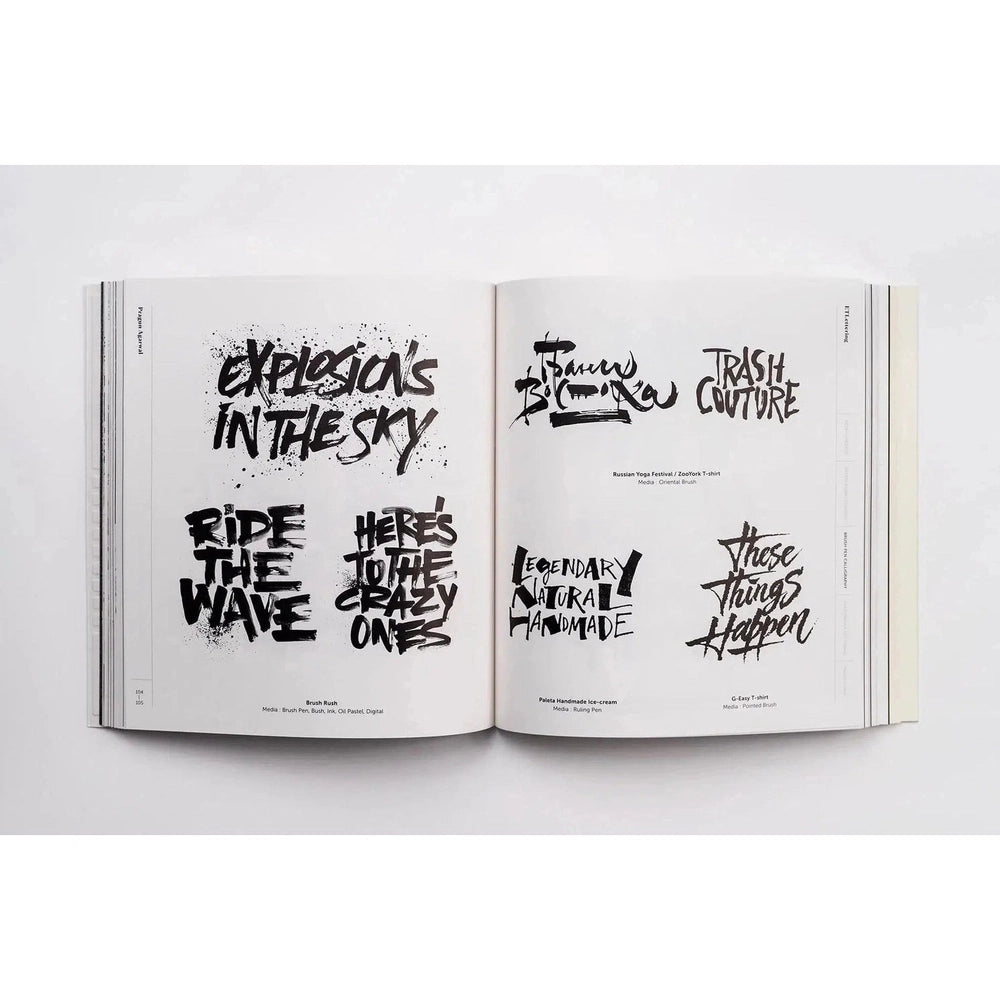 Pragun Agarwal
EXPLOSIONS
IN THE SKY
RIDE
THE
WAVE
HERE'S
TO THE
CRAZY
ONES
104
105
Brush Rush
Media : Brush Pen, Bush, Ink, Oil Pastel, Digital
ET Lettering
TRASH
COUTURE
Russian Yoga Festival / ZooYork T-shirt
Media : Oriental Brush
LEGENDARY
NATURAL
HANDMADE
These
Things
Happen
Paleta Handmade Ice-cream
Media : Ruling Pen
G-Easy T-shirt
Media : Pointed Brush
BRUSH PEN CALLIGRAPHY